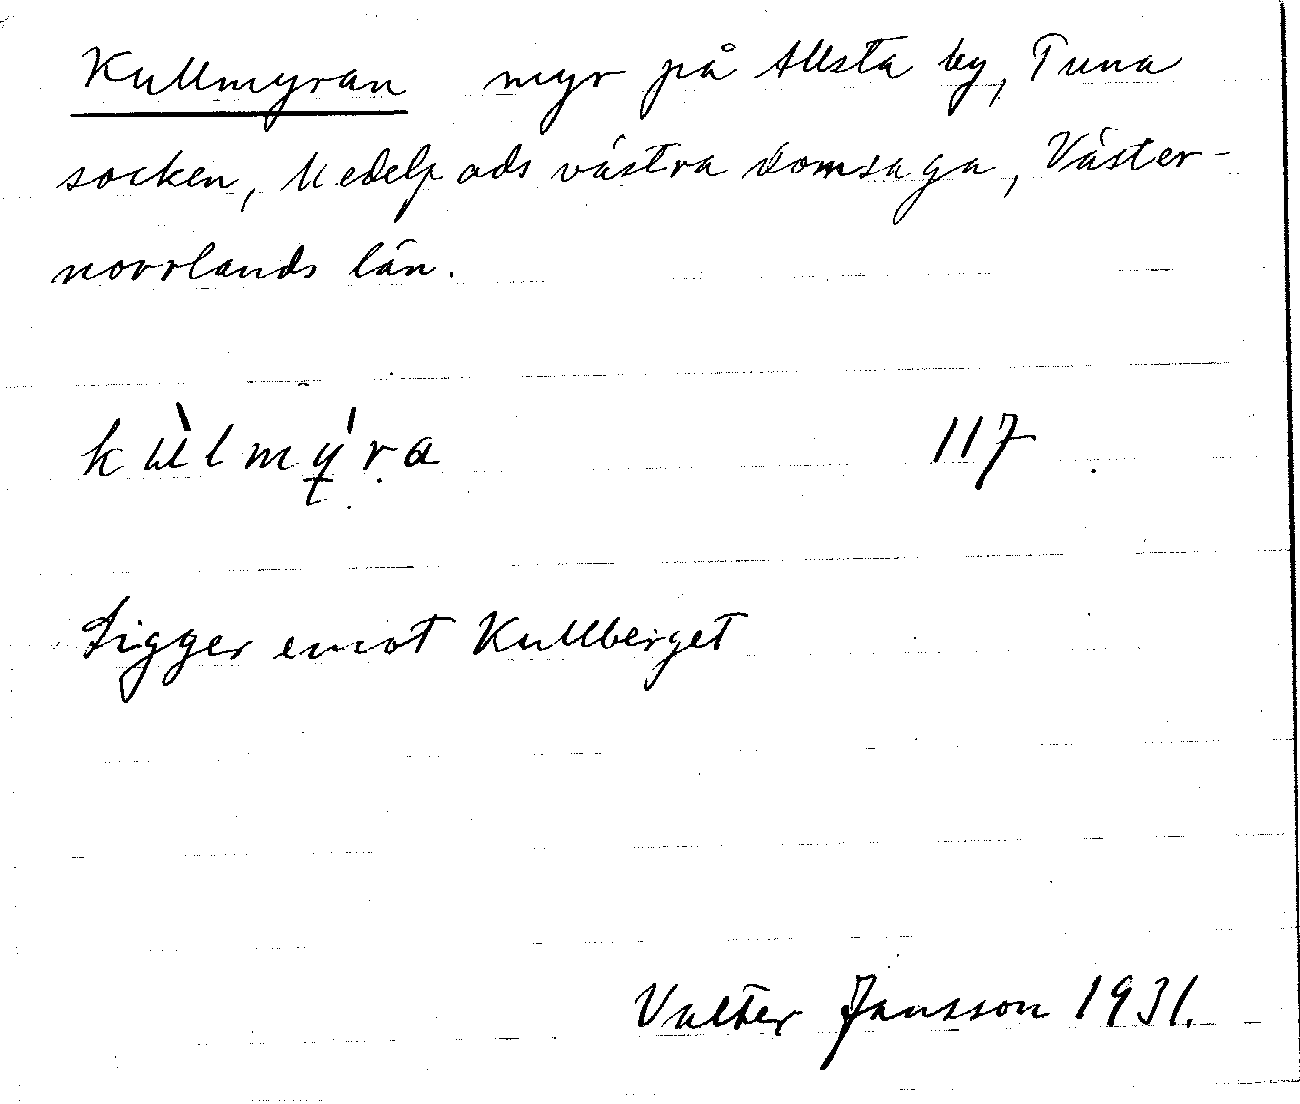 Kullmyran myr på Allsta by, Tuna
socken, Medelpads västra domsaga, Väster-
norrlands län.
kùlmýra 117
Ligger emot Kullberget
Valter Jansson 1931.